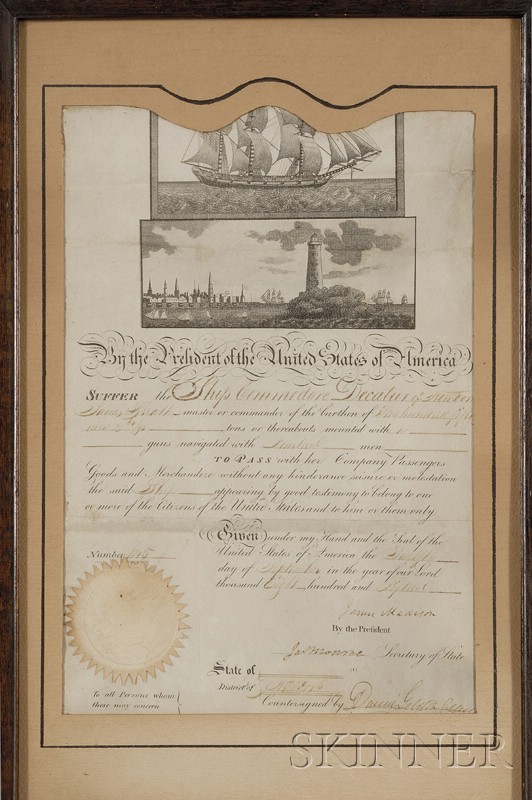 By the President of the United States of America
SUFFER the Ship Commodore Decatur of New York
master or commander of the burthen of hundred fifty
tons or thereabouts mounted with no
guns navigated with men
TO PASS with her Company Passengers
Goods and Merchandize without any hinderance seisure or molestation
the said Ship appearing by good testimony to belong to one
or more of the Citizens of the United States and to him or them only
Given under my Hand and the Seal of the
United States of America the
day of September in the year of our Lord
thousand Eight hundred and
Number
James Madison
By the President
Jas Monroe Secretary of State
State of
District of New York
Countersigned by
To all Persons whom
these may concern
SKINNER